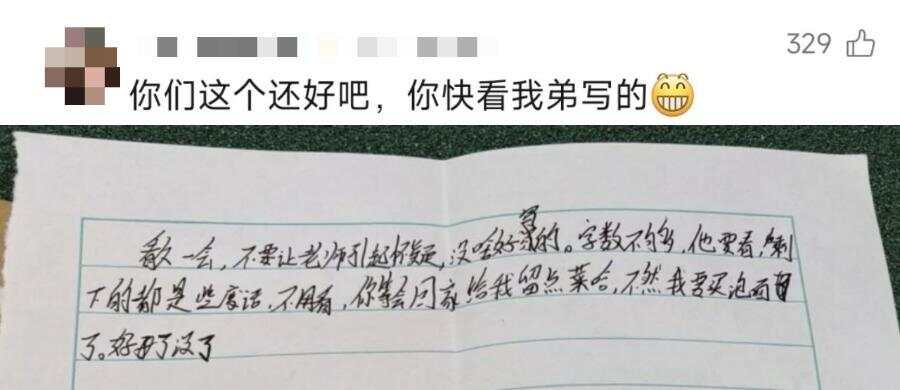 329
你们这个还好吧，你快看我弟写的😁
看久一会，不要让老师引起怀疑，没啥好写的。字数不够多，他要看，剩
下的都是些废话，不用看，你等会回家给我留点菜合，不然我要买泡面
了。好了没了